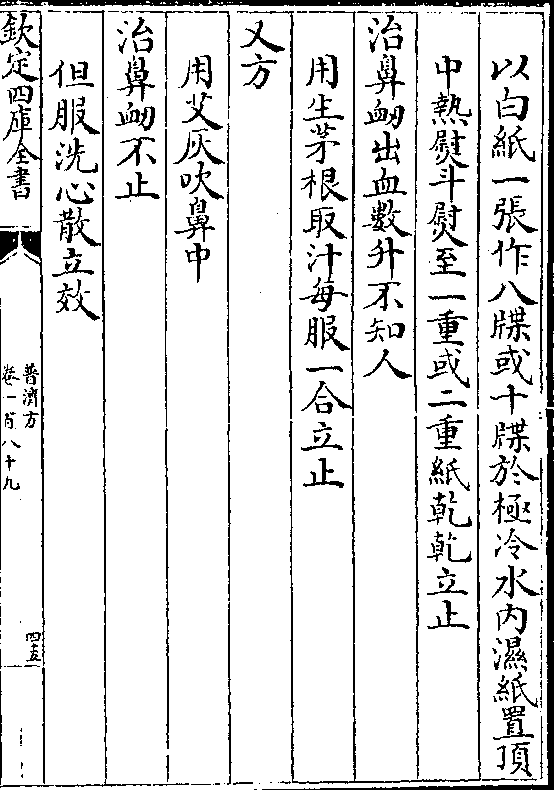 以白紙一張作八牒或十牒於極冷水内濕紙置頂
中熱熨斗熨至一重或二重紙乾乾立止
治鼻衂出血數升不知人
用生茅根取汁每服一合立止
又方
用艾灰吹鼻中
治鼻衂不止
但服洗心散立效
欽定四庫全書
普濟方
卷一百八十九
四十五